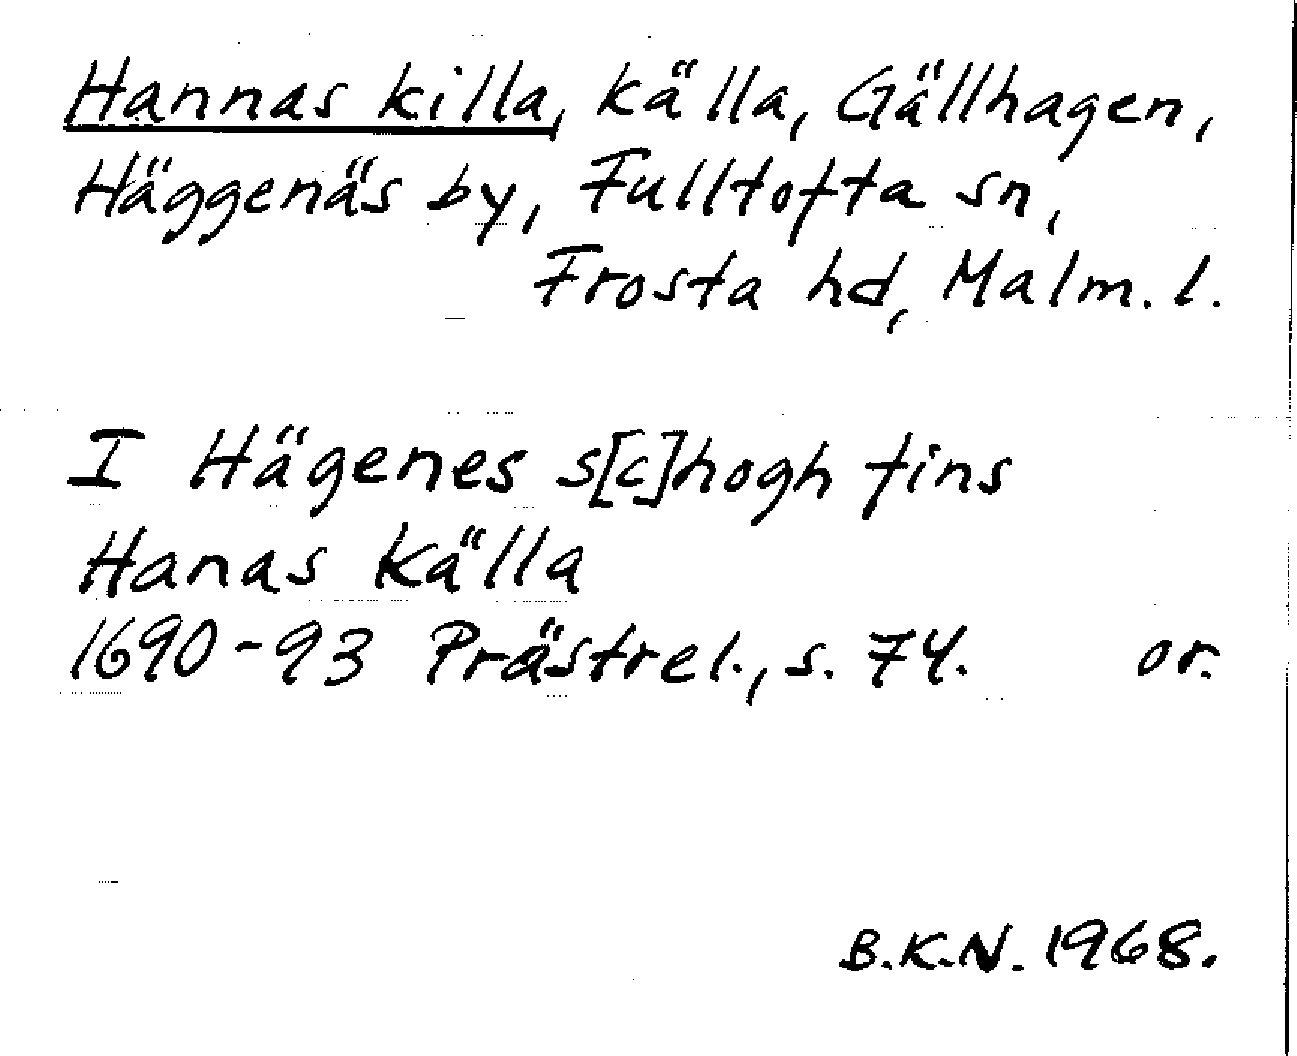 Hannas killa, källa, Gällhagen,
Häggenäs by, Fulltofta sn,
Frosta hd, Malm. l.
I Hägenes s[c]hogh fins
Hanas Källa
1690-93 Prästrel., s. 74. or.
B.K.N. 1968.